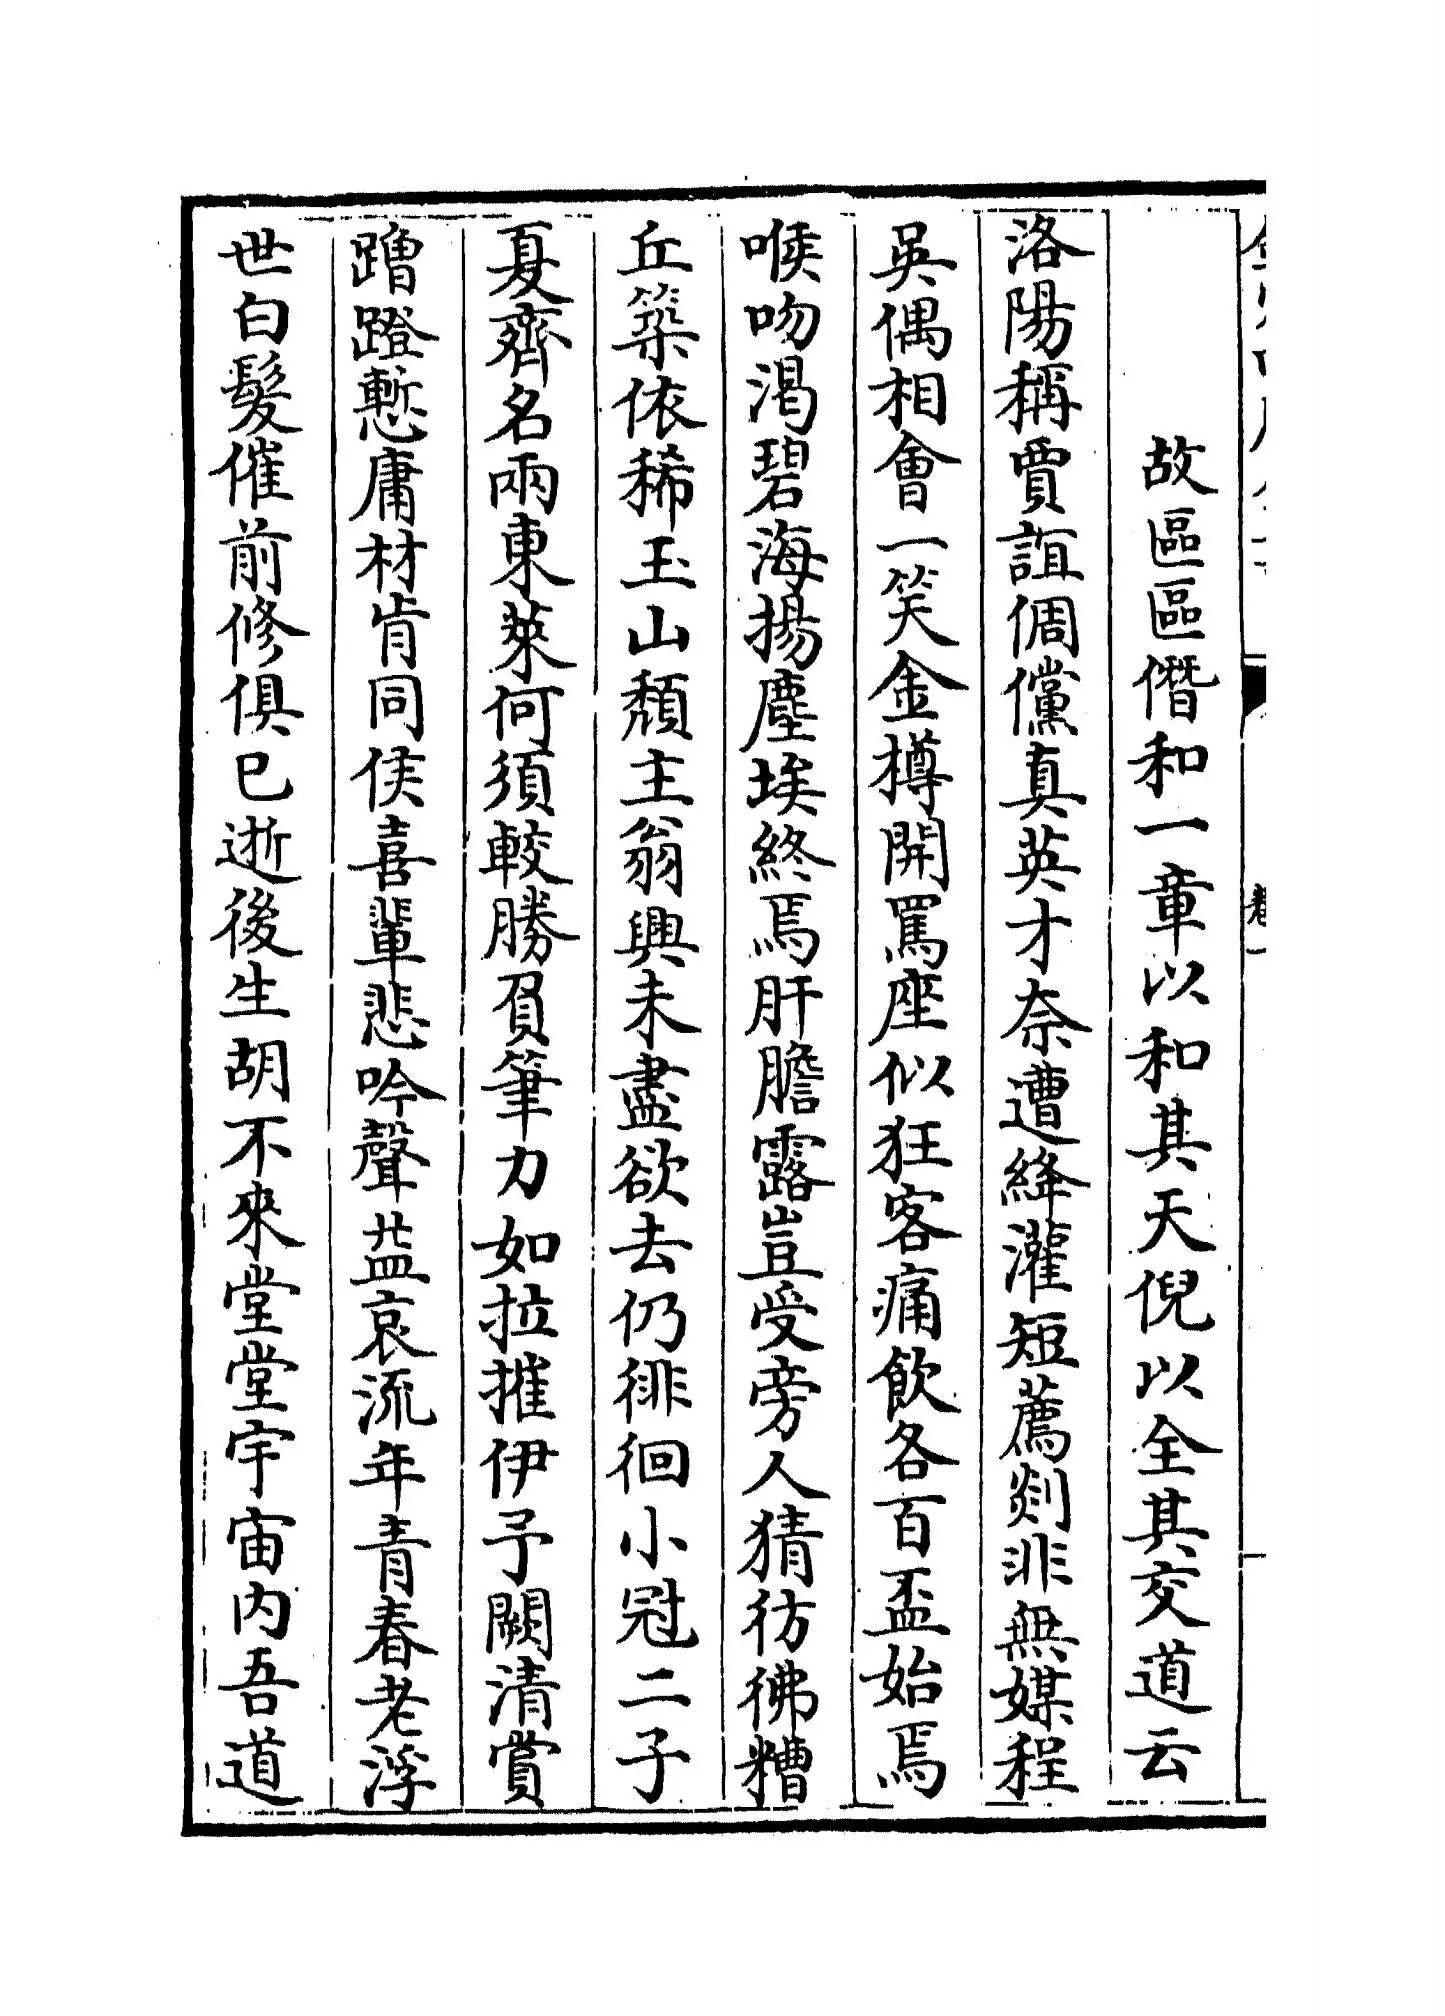 故區區僭和一章以和其天倪以全其交道云
洛陽稱賈誼倜儻真英才奈遭絳灌短薦剡非無媒程
吳偶相會一笑金樽開罵座似狂客痛飲各百盃始焉
喉吻渴碧海揚塵埃終焉肝膽露豈受旁人猜彷彿糟
丘築依稀玉山頹主翁興未盡欲去仍徘徊小冠二子
夏齊名兩東萊何須較勝負筆力如拉摧伊予闕清賞
蹭蹬慙庸材肯同侯喜輩悲吟聲益哀流年青春老浮
世白髮催前修俱已逝後生胡不來堂堂宇宙內吾道